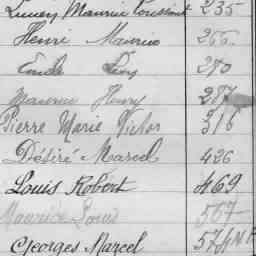 Maurice Toussaint 235
Henri Maurice 266
Emile 270
Maurice Henry 287
Pierre Marie Victor 316
Désiré Marcel 426
Louis Robert 469
Maurice Louis 567
Georges Marcel 574